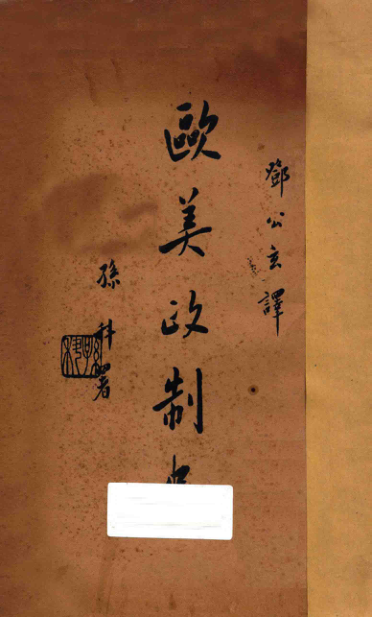 鄧公玄譯
歐美政制
孫科署